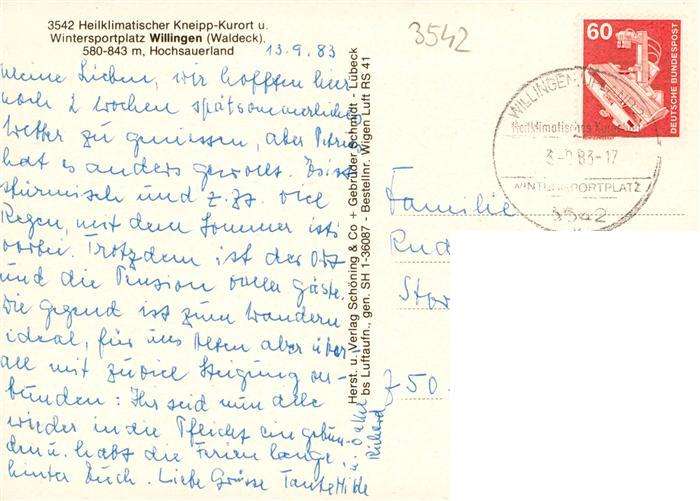 3542 Heilklimatischer Kneipp-Kurort u.
Wintersportplatz Willingen (Waldeck).
580-843 m, Hochsauerland
13.9.83
meine Lieben, wir hofften hier
noch 2 Wochen spätsommerliches
Wetter zu geniessen, aber Petrus
hat es anders gewollt. Es ist
stürmisch und z.Zt. viel
Regen, mit dem Sommer ists
vorbei. Trotzdem ist der Ort
und die Pension voller Gäste.
Die Gegend ist zum Wandern
ideal, für uns Alten aber über-
all mit zuviel Steigung ver-
bunden: Ihr seid nun alle
wieder in die Pflicht eingebun-
den u. habt die Ferien lange
hinter Euch. Liebe Grüsse Tante Hilde
u. Onkel
Richard
Herst. u. Verlag Schöning & Co + Gebrüder Schmidt - Lübeck
bs Luftaufn., gen. SH 1-36087 - Bestellnr. Wigem Luft RS 41
3542
60
DEUTSCHE BUNDESPOST
WILLINGEN
Heilklimatischer Kurort
83-17
WINTERSPORTPLATZ
3542
Familie
Rud
50